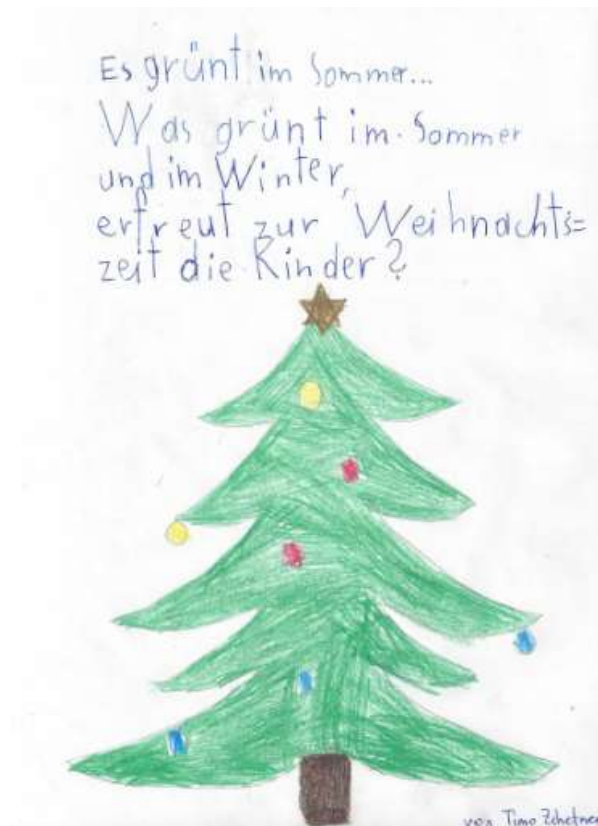 Es grünt im Sommer...
Was grünt im Sommer
und im Winter,
erfreut zur Weihnachts=
zeit die Kinder?
von Timo